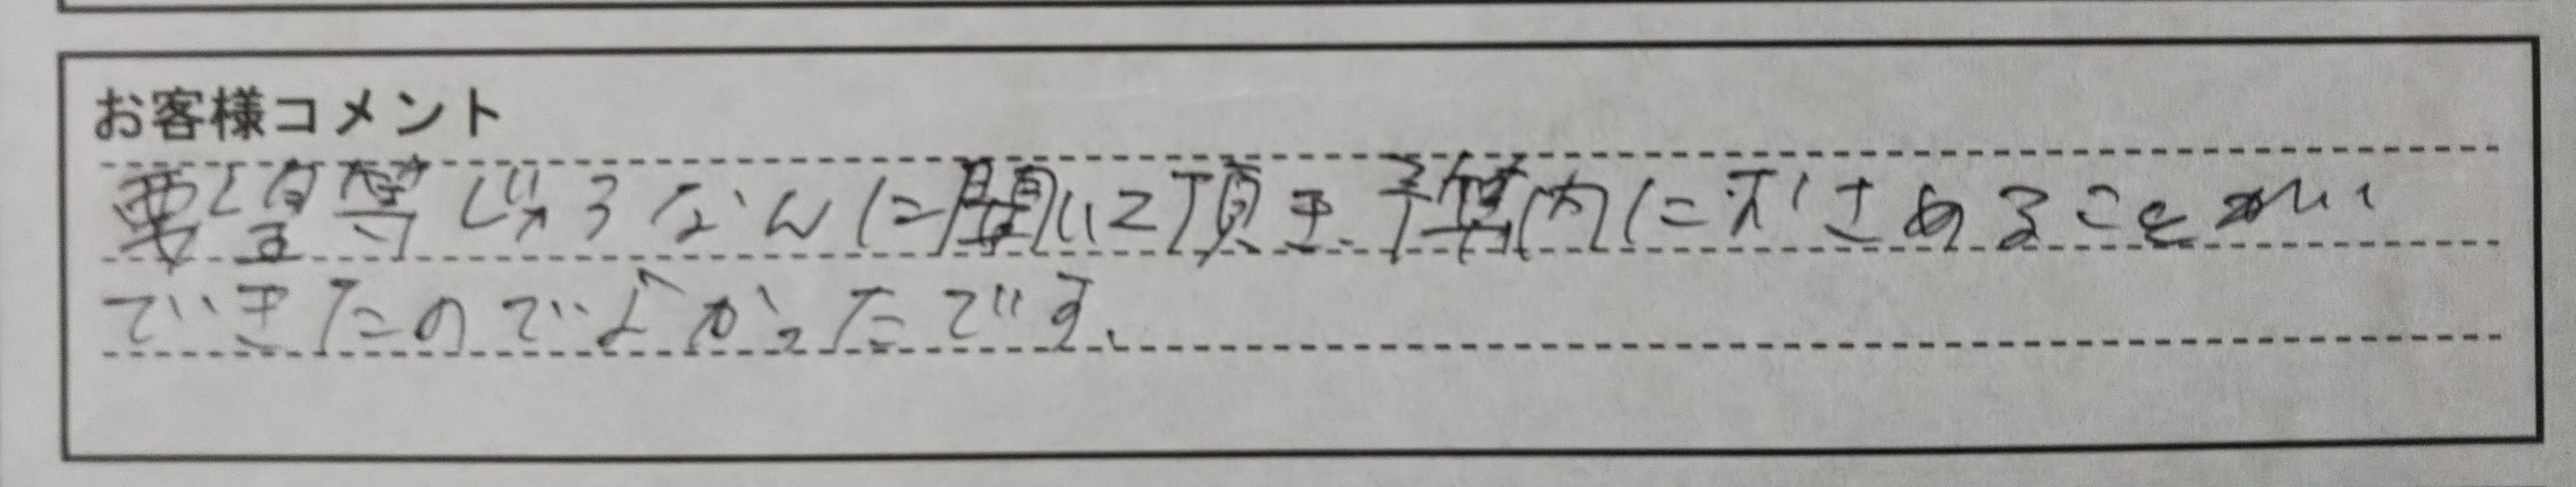 お客様コメント
要望等じゅうなんに聞いて頂き予算内におさめることが
できたのでよかったです。